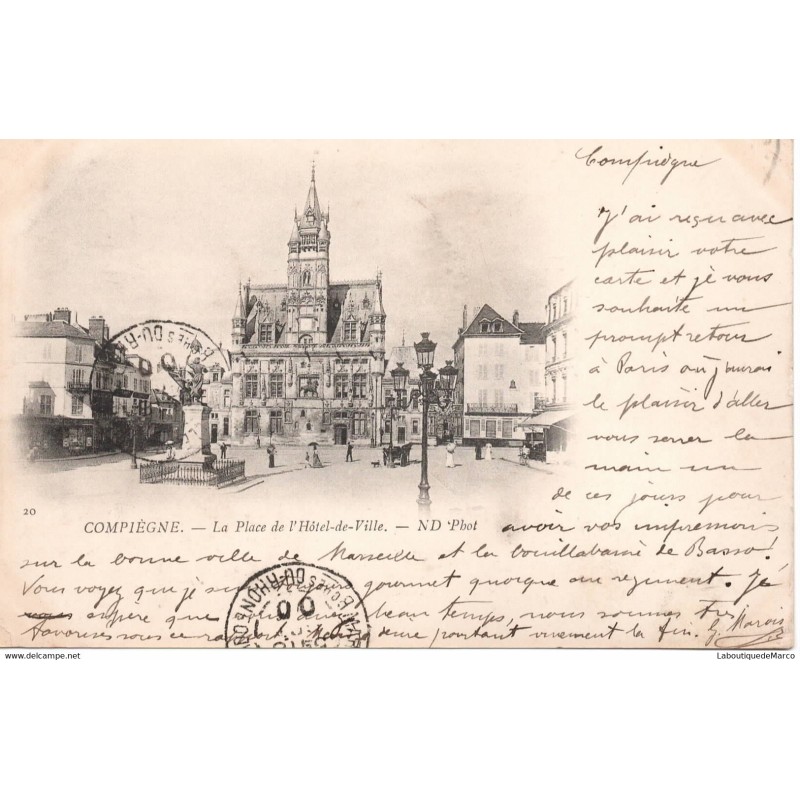 Compiègne
J'ai reçu avec
plaisir votre
carte et je vous
souhaite un
prompt retour
à Paris où j'aurai
le plaisir d'aller
vous serrer la
main un
de ces jours pour
20
COMPIÈGNE. — La Place de l'Hôtel-de-Ville. — ND Phot
avoir vos impressions
sur la bonne ville de Marseille et la bouillabaisse de Basso!
Vous voyez que je suis toujours gourmet quoique au régiment. Je
vous espère que vous avez beau temps, nous sommes très
favorisés sous ce rapport. Mon désire pourtant vivement la fin. G. Marois
BCHES DU RHONE
00
www.delcampe.net
LaboutiquedeMarco